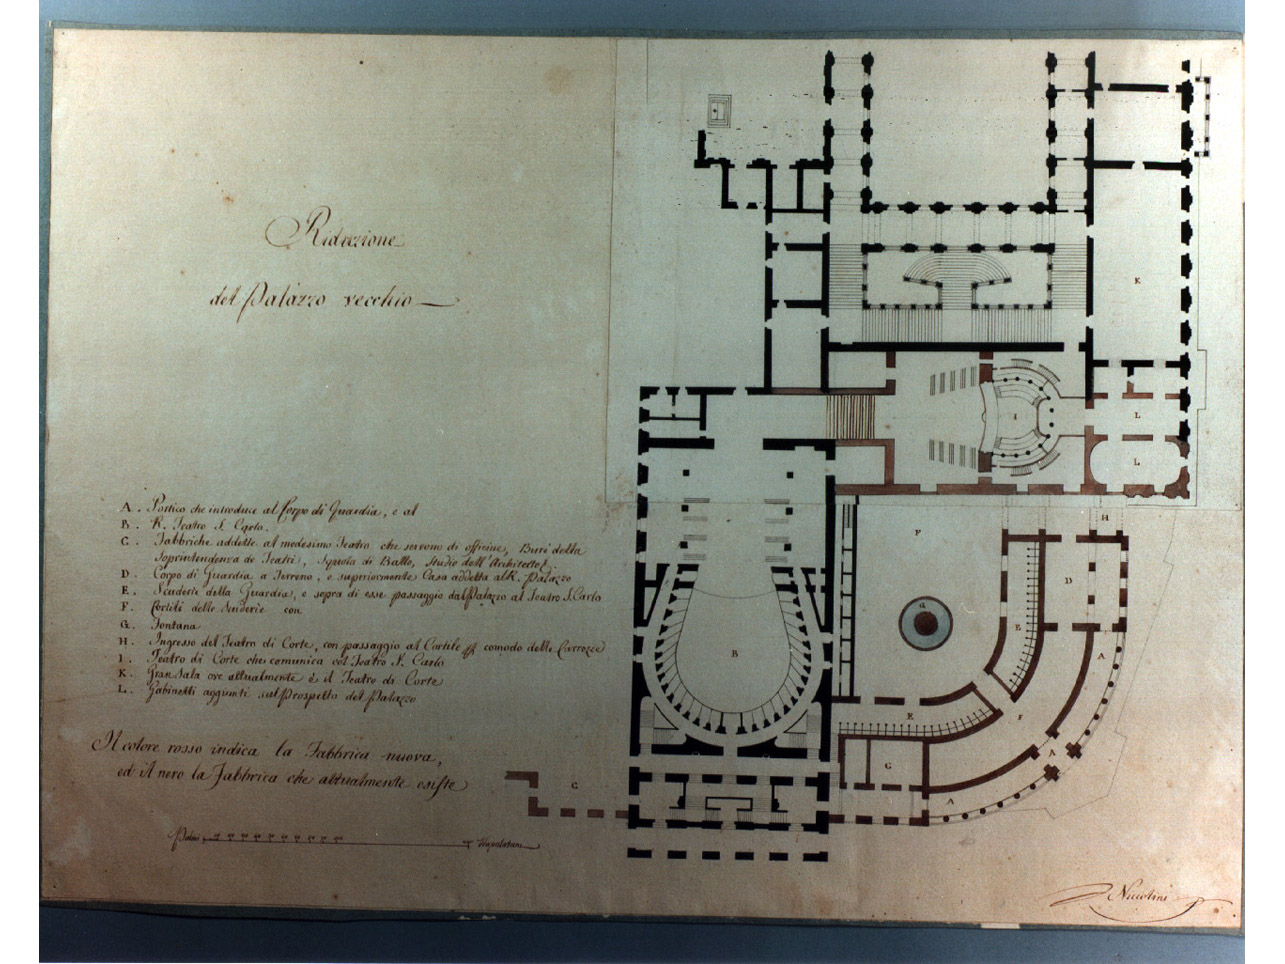 Riduzione
del Palazzo vecchio
A. Portico che introduce al Corpo di Guardia, e al
B. R. Teatro S. Carlo.
C. Fabbriche addette al medesimo Teatro che servono di officine, Buri della
Soprintendenza de Teatri, Squola di Ballo, Studio dell'Architetto.
D. Corpo di Guardia a Terreno, e superiormente Casa addetta al R. Palazzo
E. Scuderie della Guardia, e sopra di esse passaggio dal Palazzo al Teatro S. Carlo
F. Cortili delle Scuderie con
G. Fontana
H. Ingresso del Teatro di Corte, con passaggio al Cortile pp comodo delle Carrozze
I. Teatro di Corte che comunica col Teatro S. Carlo
K. Gran Sala ove attualmente è il Teatro di Corte
L. Gabinetti aggiunti sul Prospetto del Palazzo
Il colore rosso indica la Fabbrica nuova,
ed il nero la Fabbrica che attualmente esiste
Palmi Napoletani
K
I
L
L
H
F
D
G
E
A
B
E
F
A
G
C
A
Niccolini